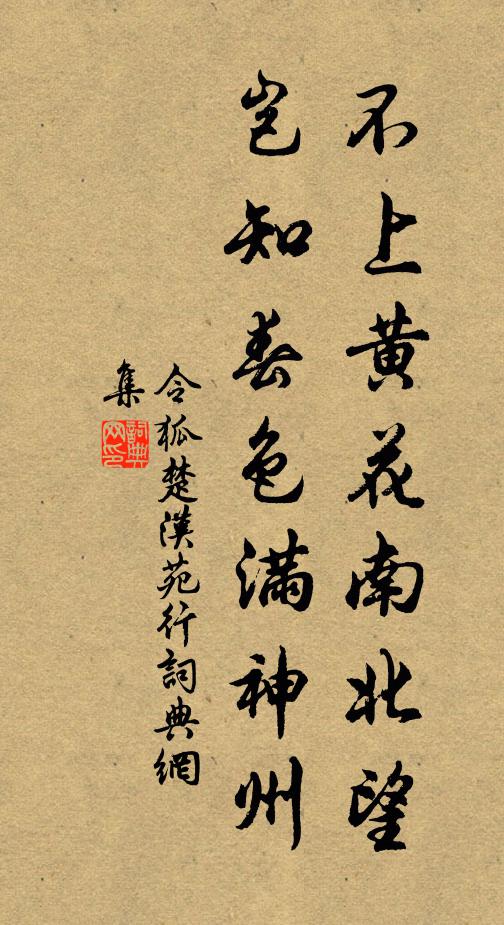 不上黄花南北望
岂知春色满神州
令狐楚漢苑行詞典網
集
詞典
网印